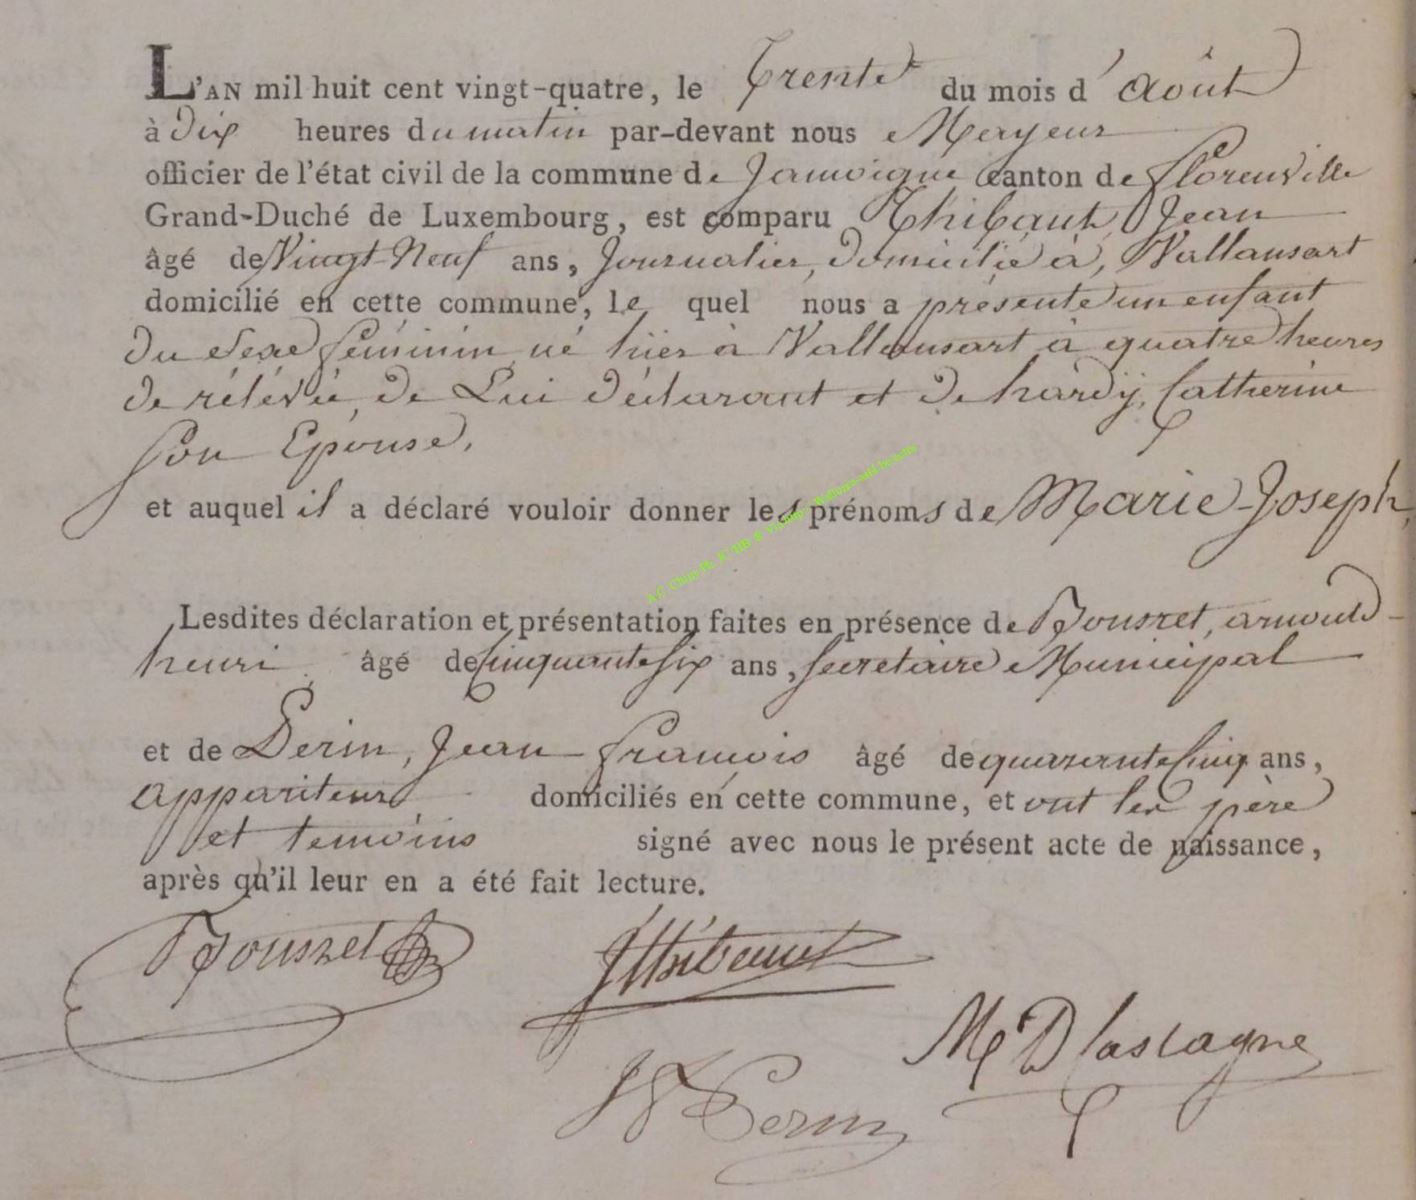 L'AN mil huit cent vingt-quatre, le Trente du mois d'Août
à Dix heures du matin par-devant nous Mayeur
officier de l'état civil de la commune de Jamoigne canton de florenville
Grand-Duché de Luxembourg, est comparu Thibaut, Jean
âgé de Vingt-Neuf ans, Journalier, domicilié à, Vallansart
domicilié en cette commune, le quel nous a présenté un enfant
du Sexe féminin né hier à Vallansart à quatre heures
de rélévée, de Lui déclarant et de hardÿ, Catherine
son Epouse,
et auquel il a déclaré vouloir donner les prénoms de Marie-Joseph,
Lesdites déclaration et présentation faites en présence de Rouszet, arnould-
henri âgé de Cinquante six ans, secretaire Municipal
et de Perin, Jean françois âgé de quarante Cinq ans,
appariteur domiciliés en cette commune, et ont les père
et temoins signé avec nous le présent acte de naissance,
après qu'il leur en a été fait lecture.
Rouszet JThibaut
M D Lastagne
JF Perin